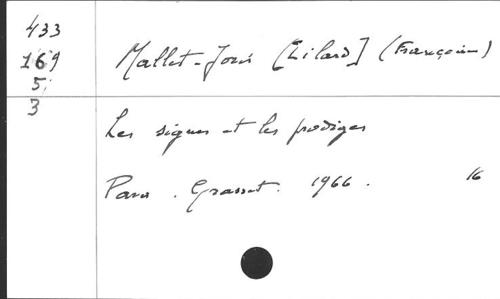 433
169
5
3
Mallet-Joris [Lilar] (Françoise)
Les signes et les prodiges
Paris. Grasset. 1966. 16